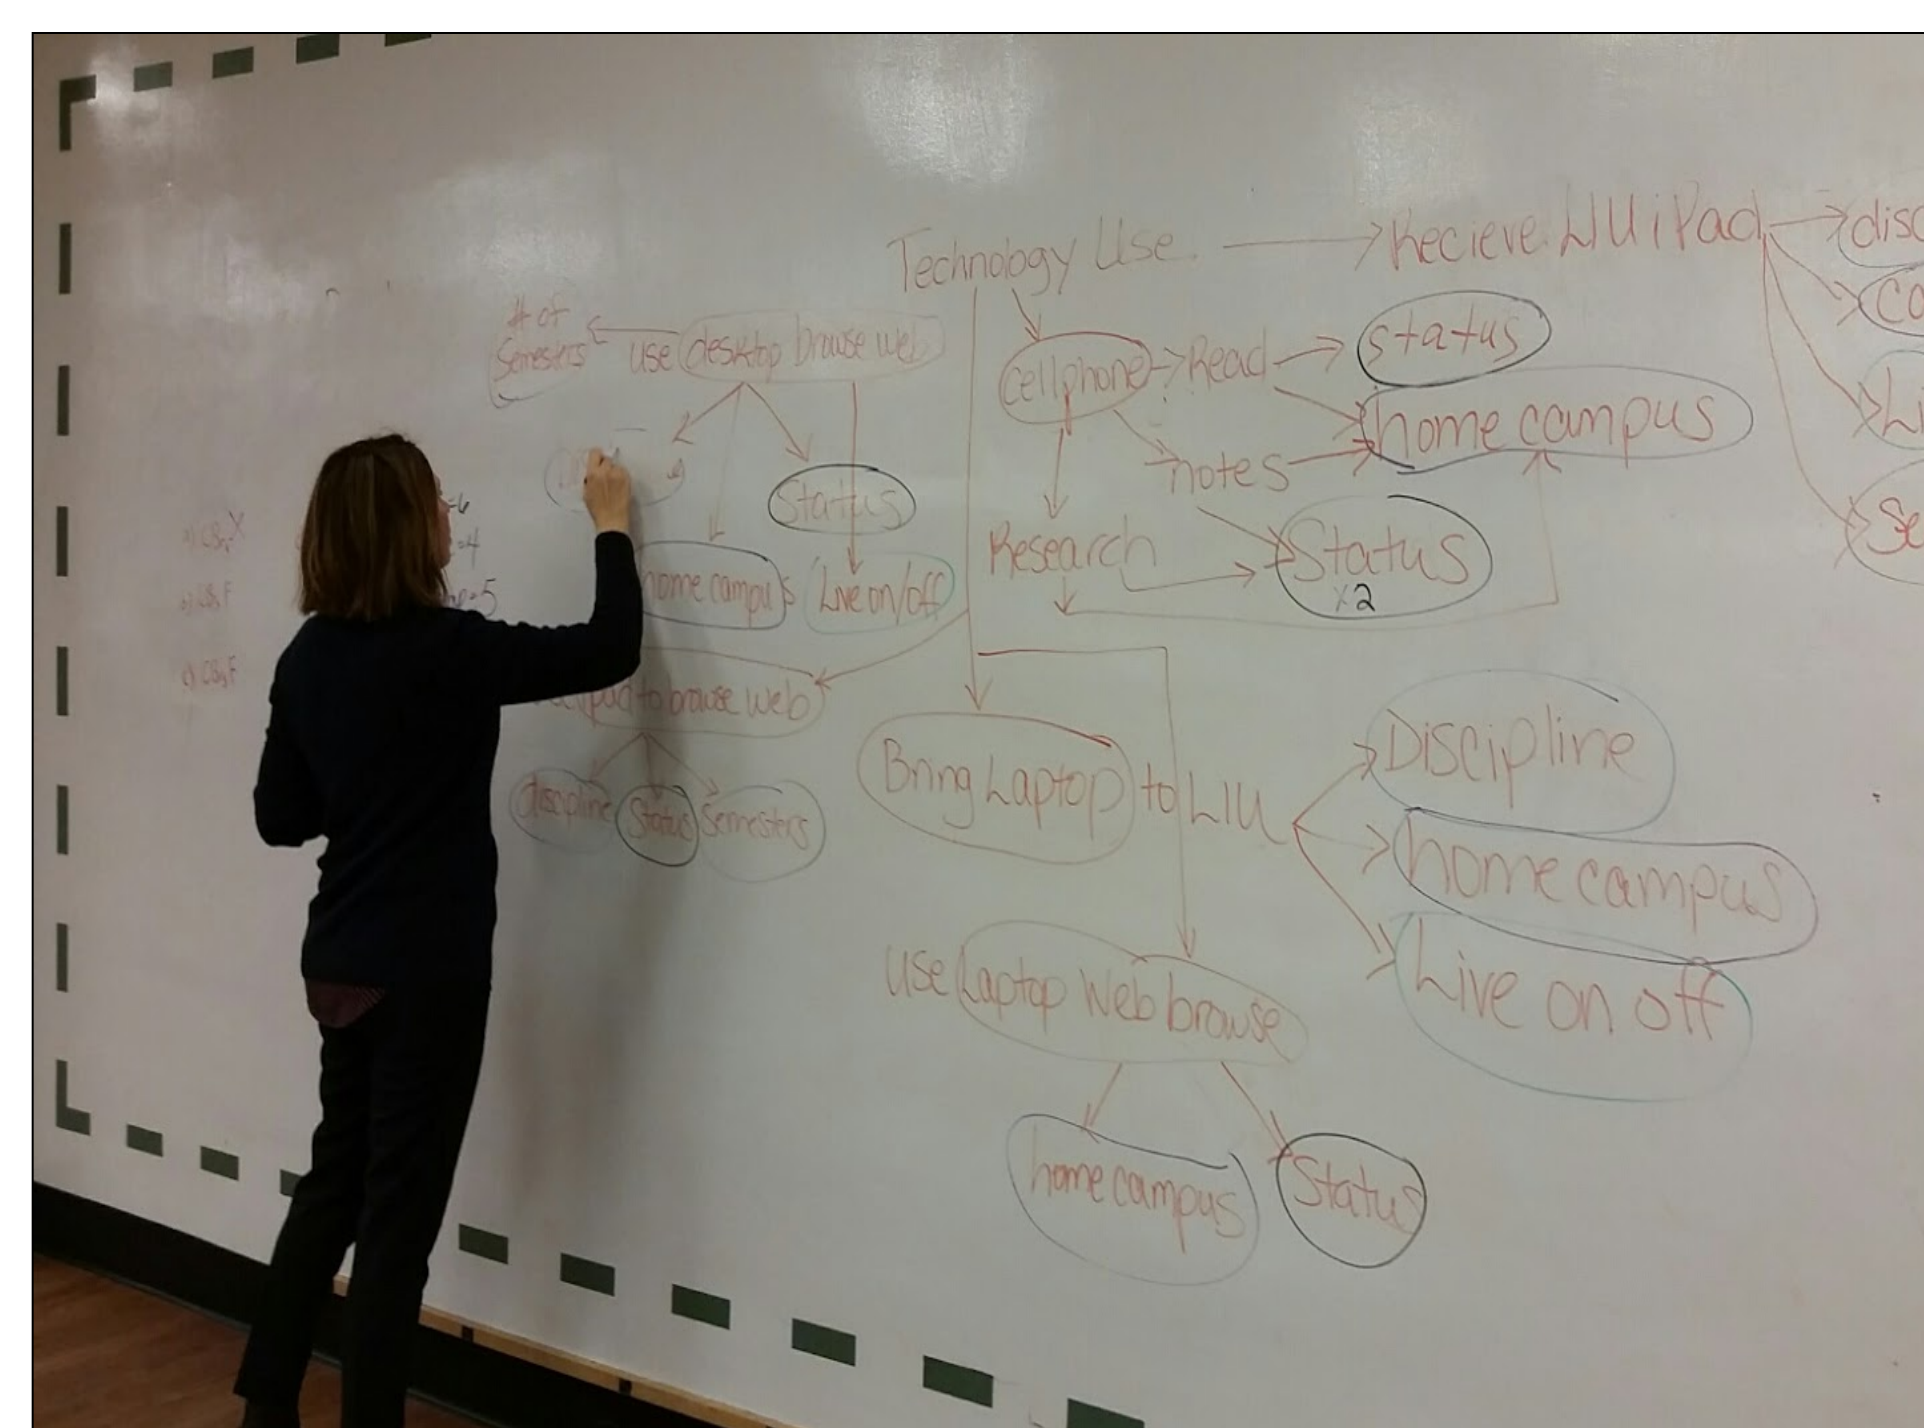 Technology Use
Recieve LIU iPad
# of
Semesters
use desktop browse web
Cellphone
Read
status
home campus
notes
Status
Research
Status
x2
home campus
Live on/off
to browse web
discipline
Status
Semesters
Bring Laptop to LIU
Discipline
home campus
Live on off
use Laptop Web browse
home campus
Status